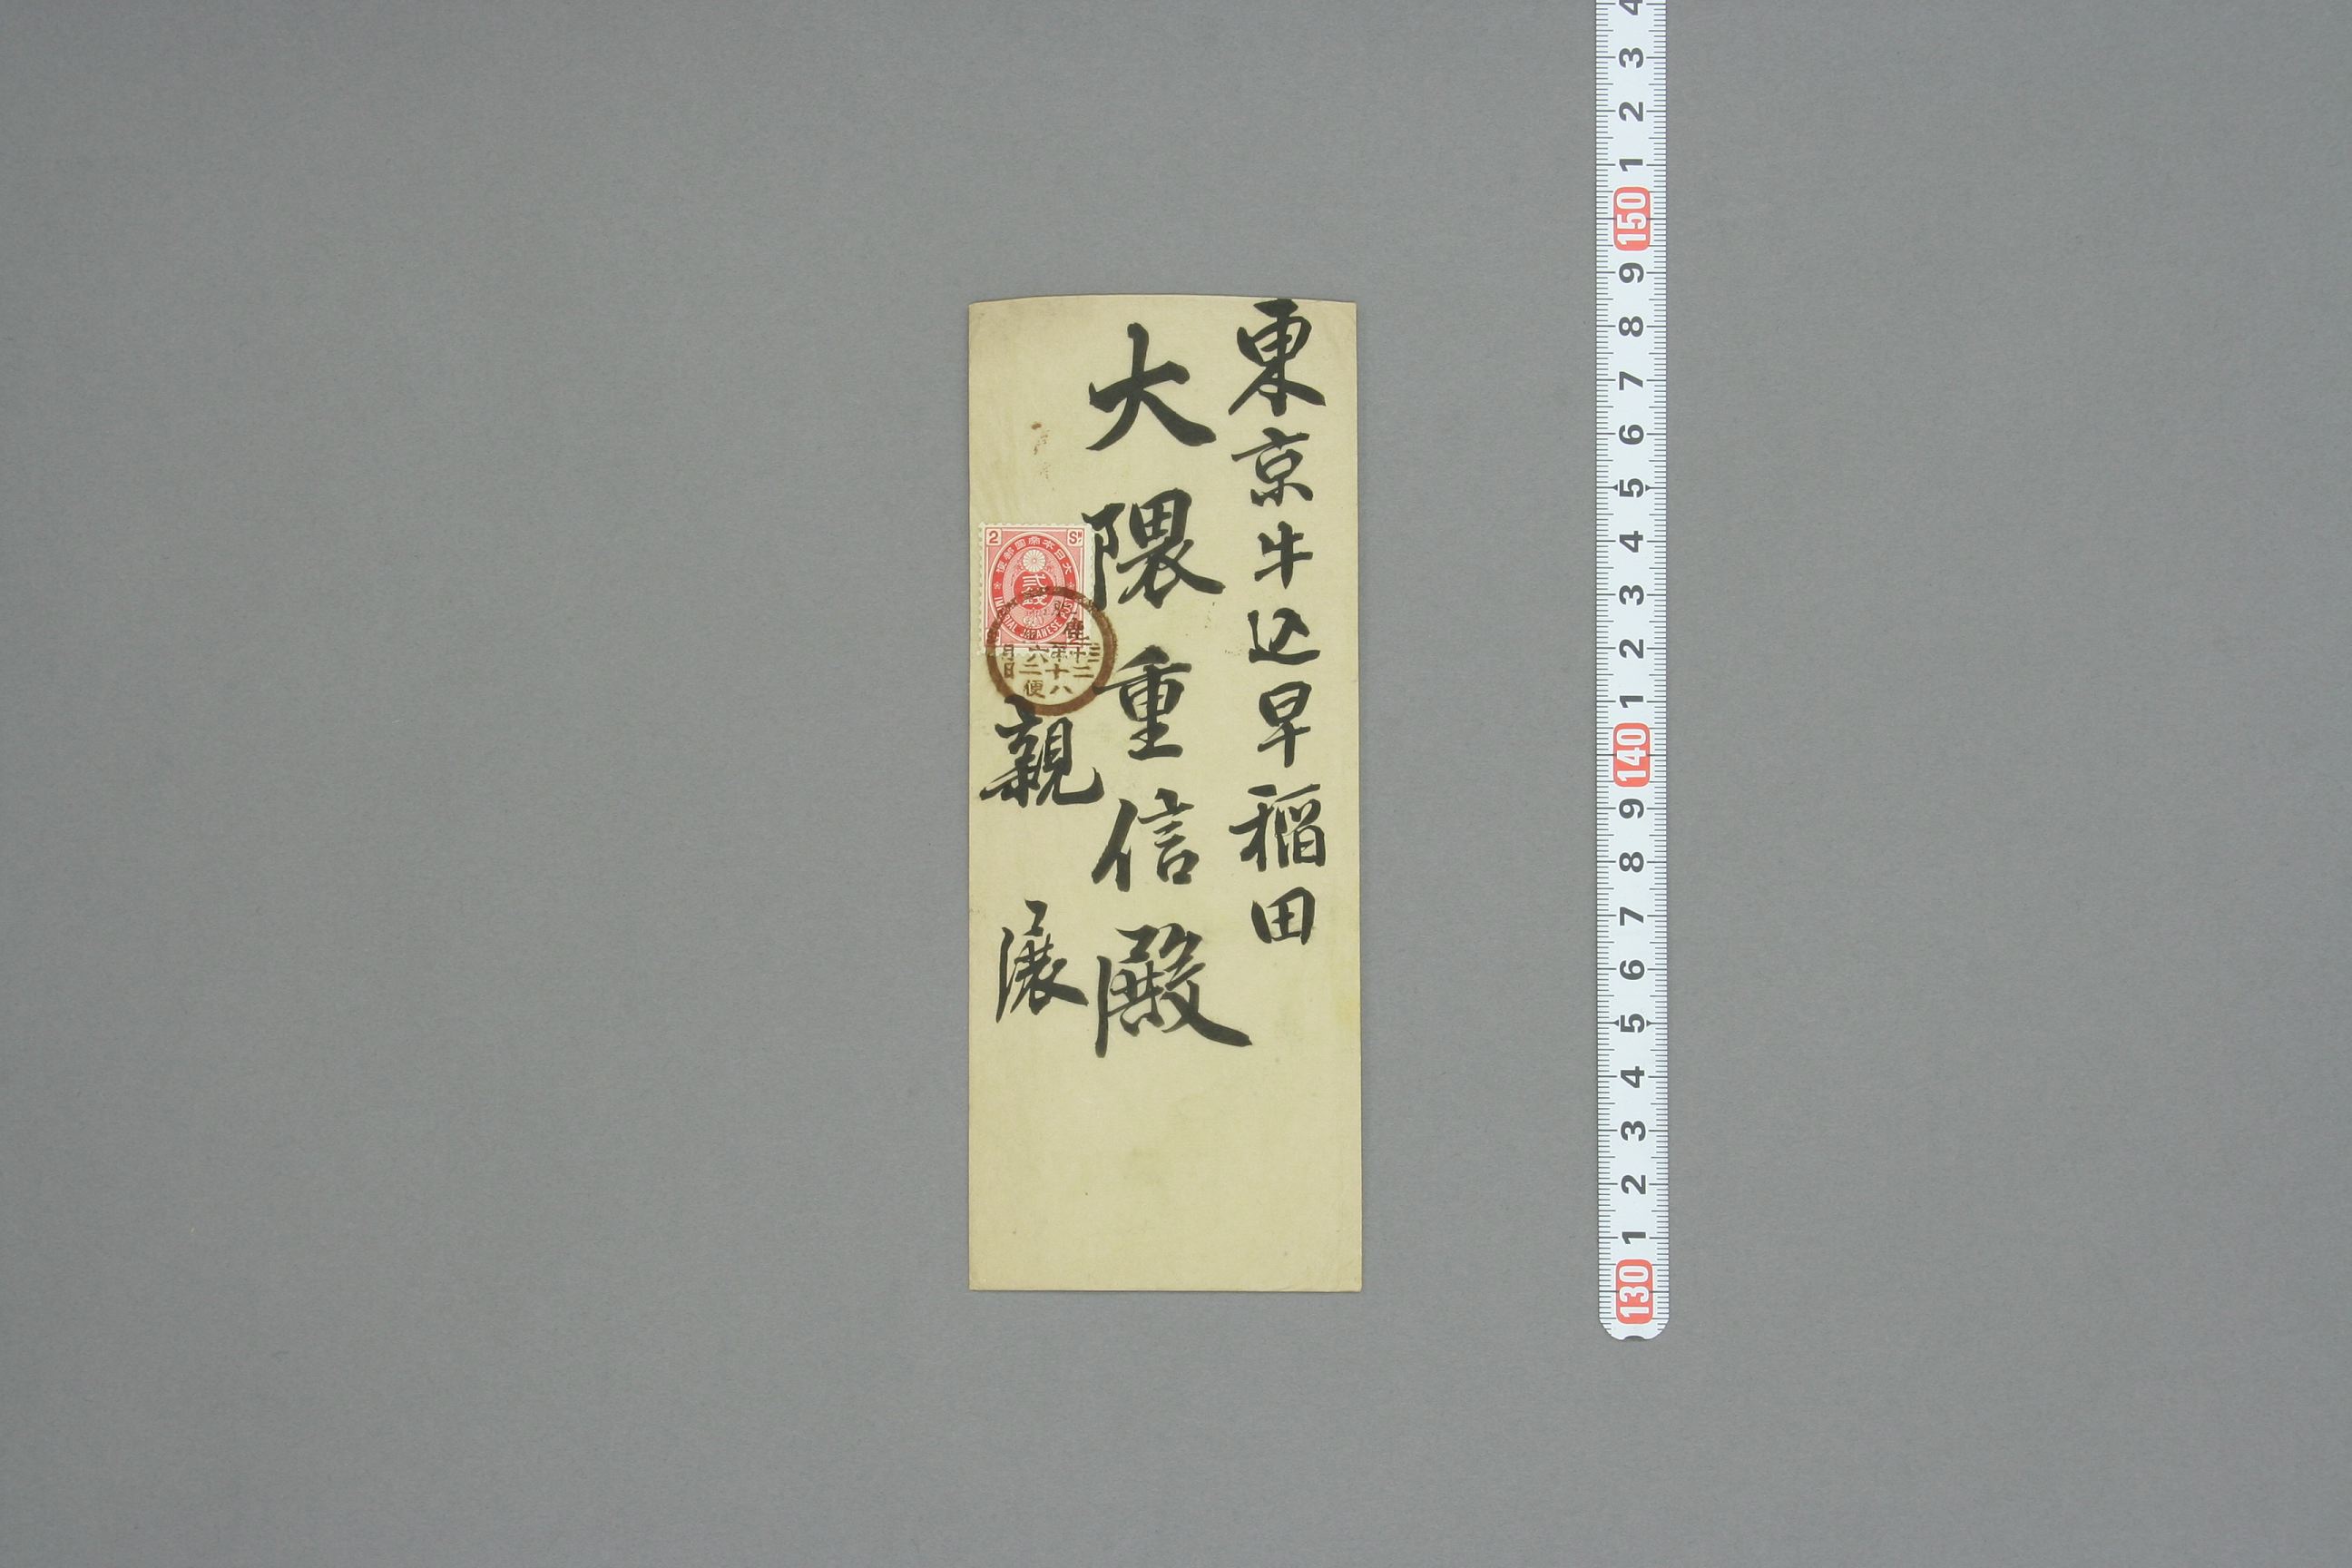 東京牛込早稲田
大隈重信殿
親展
2 SN
大日本帝国郵便
弐銭
IMPERIAL JAPANESE POST
三十二年六月
十八日
便
4
3
2
1
150
9
8
7
6
5
4
3
2
1
140
9
8
7
6
5
4
3
2
1
130